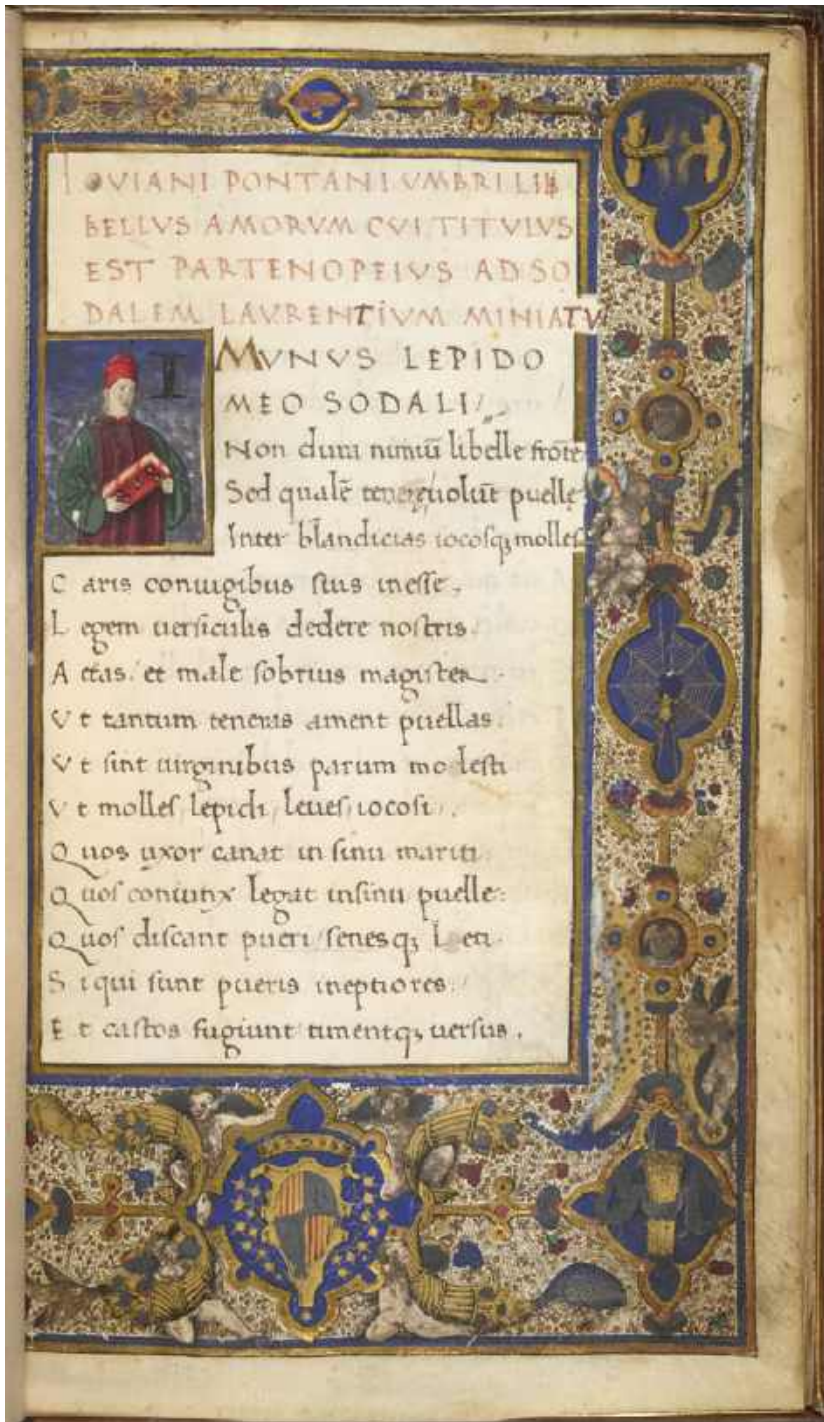 IOVIANI PONTANI UMBRI LIB
BELLVS AMORVM CVI TITVLVS
EST PARTENOPEIVS AD SO
DALEM LAVRENTIVM MINIATV
I MVNVS LEPIDO
MEO SODALI
Non dura nimiũ libelle frõte
Sed qualẽ tenere uolũt puelle
Inter blandicias iocosq; molles
C aris coniugibus suis inesse.
L egem uersiculis dedere nostris
A etas et male sobrius magister
V t tantum teneras ament puellas.
V t sint uirginibus parum molesti
V t molles lepidi leues iocosi.
Q uos uxor canat in sinu mariti
Q uos coniunx legat insinu puelle:
Q uos discant pueri senesq; L eti.
S i qui sunt pueris ineptiores.
E t castos fugiunt timentq; uersus.